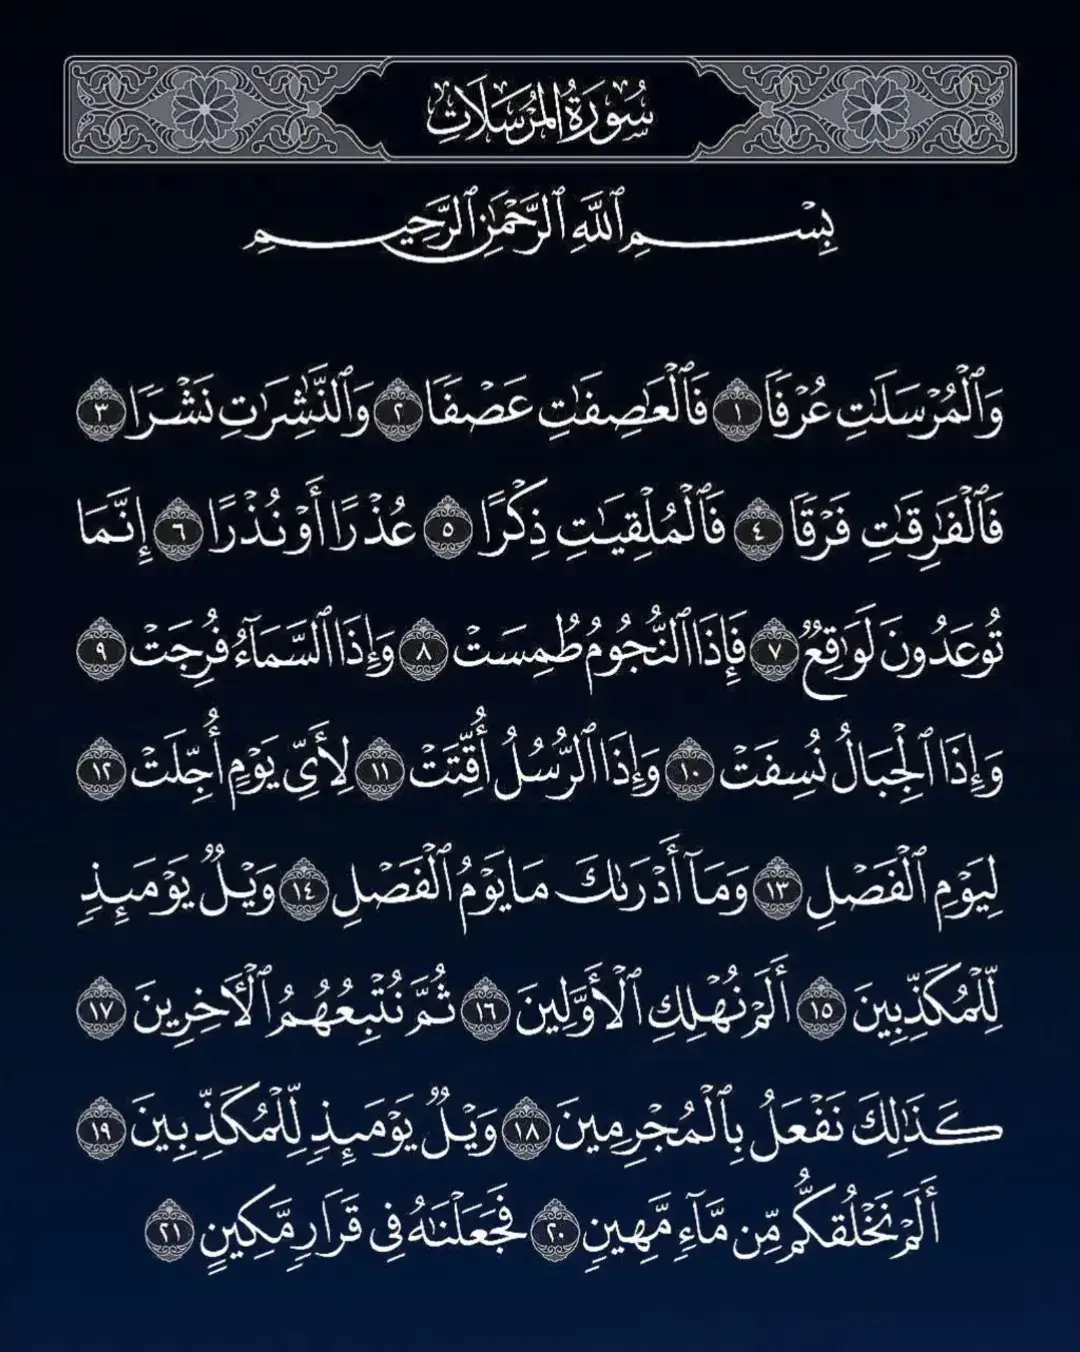 سُورَةُ المُرْسَلَاتِ
بِسْمِ ٱللَّهِ ٱلرَّحْمَٰنِ ٱلرَّحِيمِ
وَٱلْمُرْسَلَٰتِ عُرْفًا ١ فَٱلْعَٰصِفَٰتِ عَصْفًا ٢ وَٱلنَّٰشِرَٰتِ نَشْرًا ٣
فَٱلْفَٰرِقَٰتِ فَرْقًا ٤ فَٱلْمُلْقِيَٰتِ ذِكْرًا ٥ عُذْرًا أَوْ نُذْرًا ٦ إِنَّمَا
تُوعَدُونَ لَوَٰقِعٌ ٧ فَإِذَا ٱلنُّجُومُ طُمِسَتْ ٨ وَإِذَا ٱلسَّمَآءُ فُرِجَتْ ٩
وَإِذَا ٱلْجِبَالُ نُسِفَتْ ١٠ وَإِذَا ٱلرُّسُلُ أُقِّتَتْ ١١ لِأَىِّ يَوْمٍ أُجِّلَتْ ١٢
لِيَوْمِ ٱلْفَصْلِ ١٣ وَمَآ أَدْرَىٰكَ مَا يَوْمُ ٱلْفَصْلِ ١٤ وَيْلٌ يَوْمَئِذٍ
لِّلْمُكَذِّبِينَ ١٥ أَلَمْ نُهْلِكِ ٱلْأَوَّلِينَ ١٦ ثُمَّ نُتْبِعُهُمُ ٱلْـَٔاخِرِينَ ١٧
كَذَٰلِكَ نَفْعَلُ بِٱلْمُجْرِمِينَ ١٨ وَيْلٌ يَوْمَئِذٍ لِّلْمُكَذِّبِينَ ١٩
أَلَمْ نَخْلُقكُّم مِّن مَّآءٍ مَّهِينٍ ٢٠ فَجَعَلْنَٰهُ فِى قَرَارٍ مَّكِينٍ ٢١